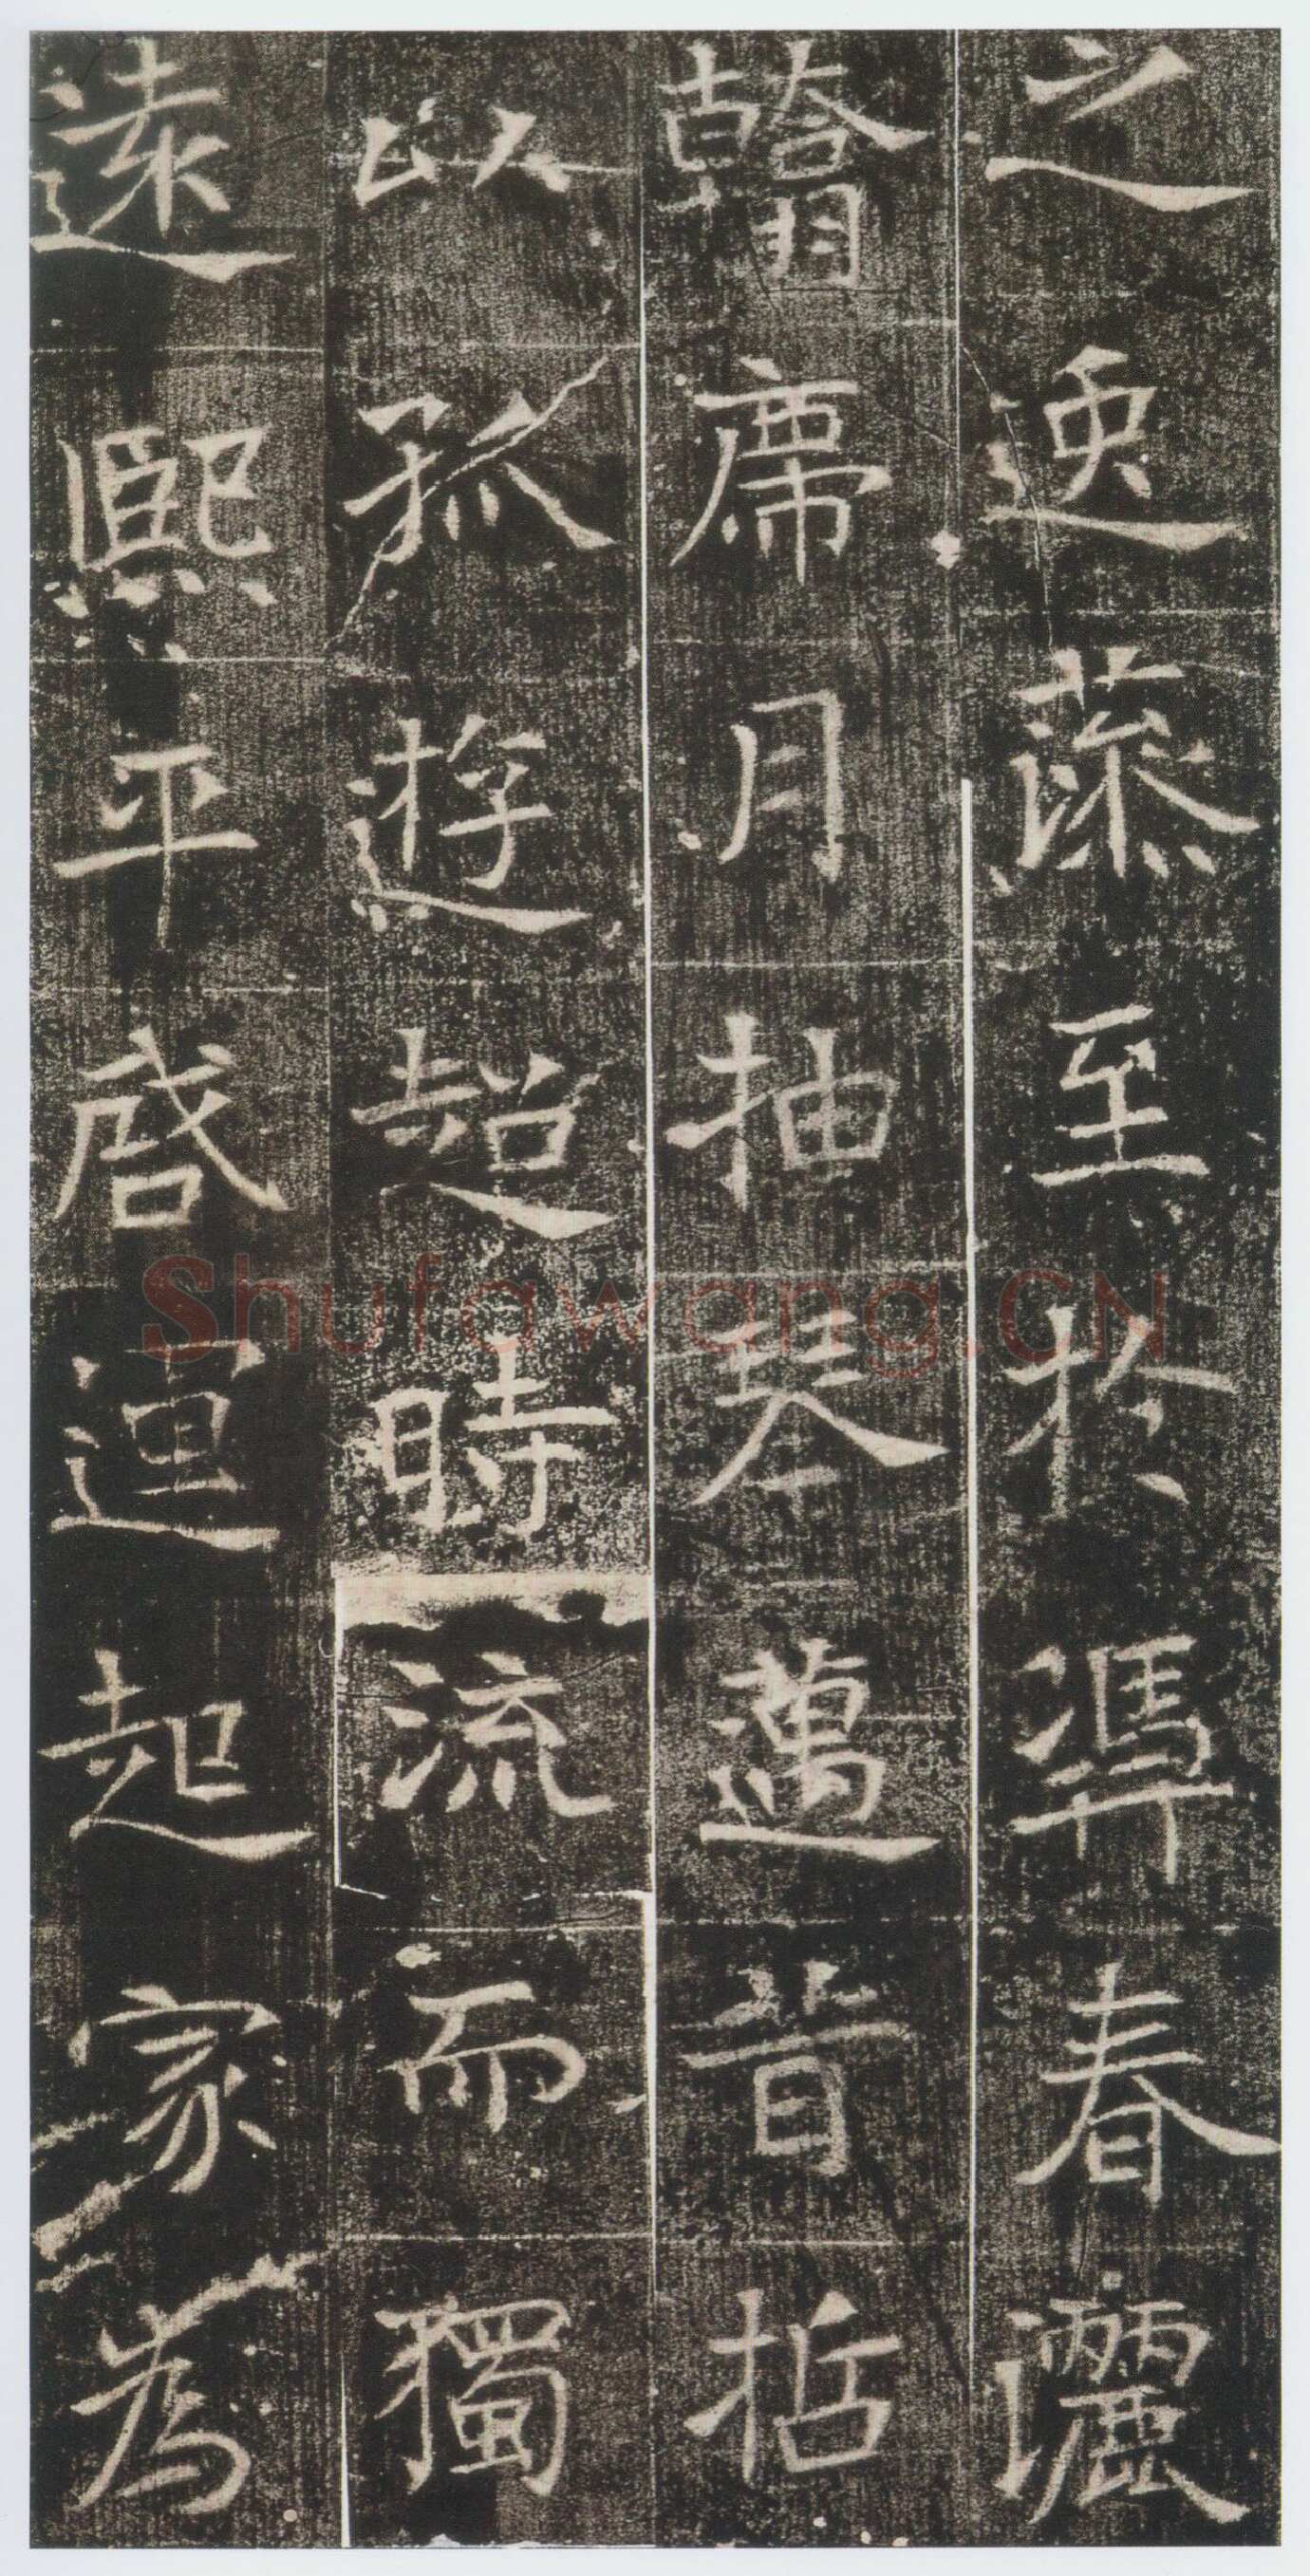 之逸藻至於準春灑
翰席月抽琴邁昔哲
以孤遊超時流而獨
遠熙平啓運起家為
Shufawang.CN